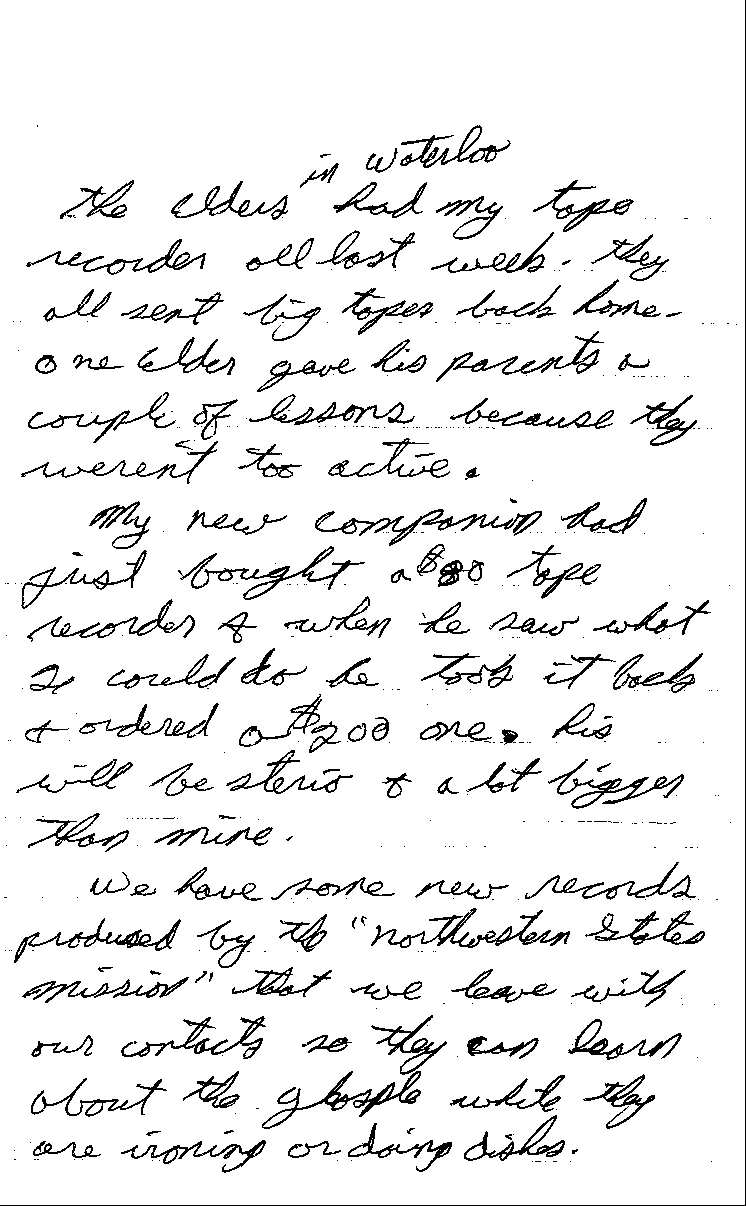 in Waterloo
The Elders had my tape
recorder all last week. They
all sent big tapes back home.
One Elder gave his parents a
couple of lessons because they
weren't too active.
My new companion had
just bought a $80 tape
recorder & when he saw what
I could do he took it back
& ordered a $200 one. his
will be sterio & a lot bigger
than mine.
We have some new records
produced by the "northwestern States
mission" that we leave with
our contacts so they can learn
about the ghosple while they
are ironing or doing dishes.